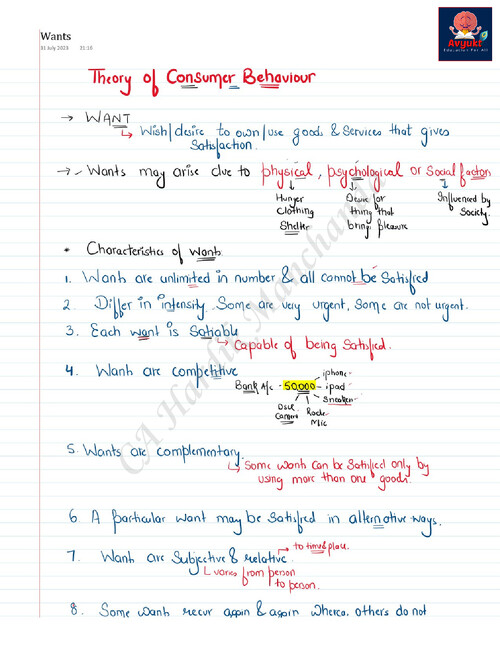 Wants
31 July 2023 21:15
Avyukt
Education For All
Theory of Consumer Behaviour
→ WANT
↳ Wish/desire to own/use goods & Services that gives
Satisfaction.
→ Wants may arise due to physical, psychological or Social factors
Hunger
Clothing
Shelter
Desire for
thing that
bring pleasure
Influenced by
Society.
• Characteristics of Wants
1. Wants are unlimited in number & all cannot be Satisfied
2. Differ in intensity. Some are very urgent, Some are not urgent.
3. Each want is Satiable
↳ Capable of being Satisfied.
4. Wants are competitive
Bank A/c - 50,000
iphone
ipad
Sneakers
Camera
Rode
Mic
5. Wants are complementary.
↳ Some wants can be Satisfied only by
using more than one goods.
6. A particular want may be Satisfied in alternative ways.
7. Wants are Subjective & relative.
→ to time & place.
↳ varies from person
to person.
8. Some wants recur again & again whereas others do not
CA Hardik Manchanda